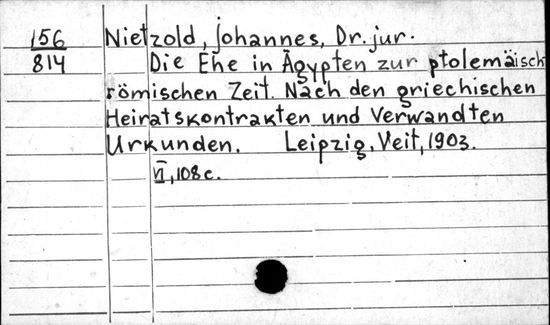 156 Nietzold, Johannes, Dr. jur.
814 Die Ehe in Ägypten zur ptolemäisch
römischen Zeit. Nach den griechischen
Heiratskontrakten und verwandten
Urkunden. Leipzig, Veit, 1903.
VI, 108 c.